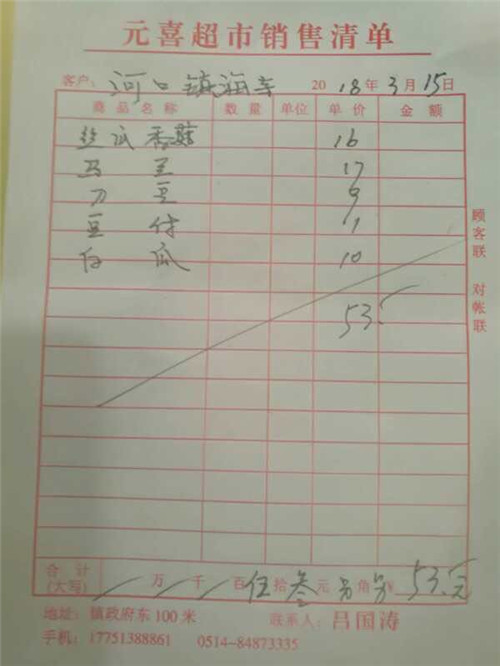 元喜超市销售清单
客户: 河口镇海辛 2018年3月15日
商品名称 数量 单位 单价 金额
丝瓜香菇 16
马兰 17
刀豆 9
豆付 1
白瓜 10
53.
顾客联 对帐联
合计(大写) 万 千 百伍拾叁元另角另 ¥ 53.元
地址: 镇政府东100米 联系人: 吕国涛
手机: 17751388861 0514-84873335